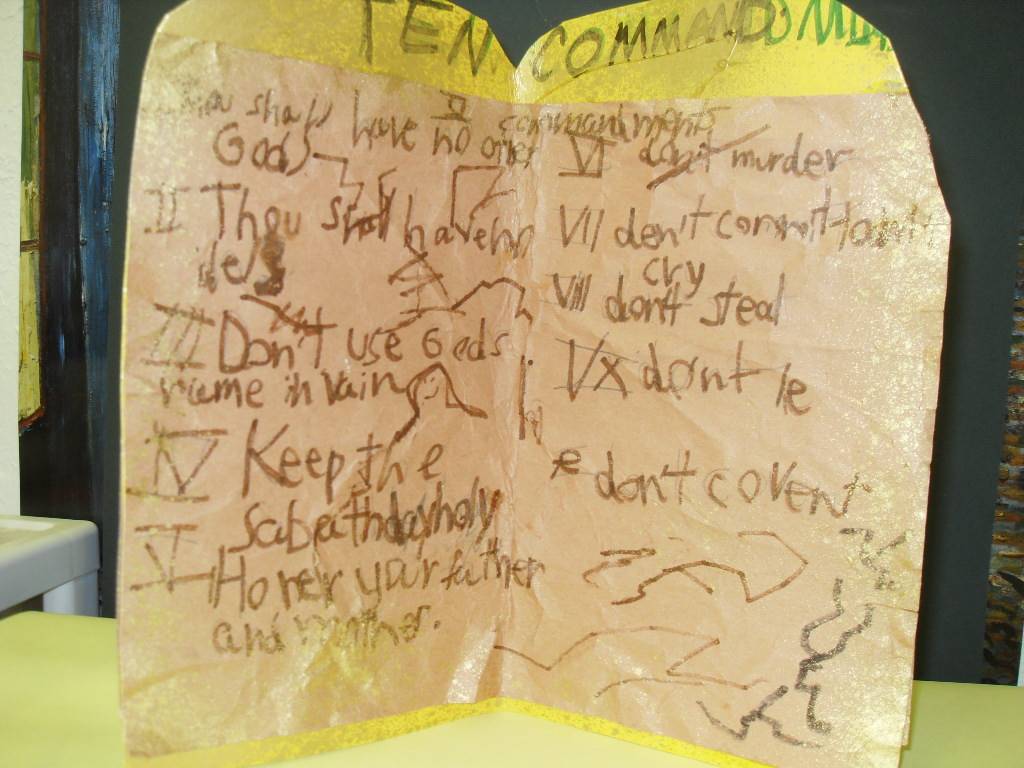 TEN COMMANDOM
shall have no other
Gods
II Thou shall have no
idels
III Don't use Gods
name in vain
IV Keep the
Sabeathdayholy
V Honer your father
and mother.
commandments
VI don't murder
VII don't committ
cry
VIII don't steal
VX dont le
don't covent